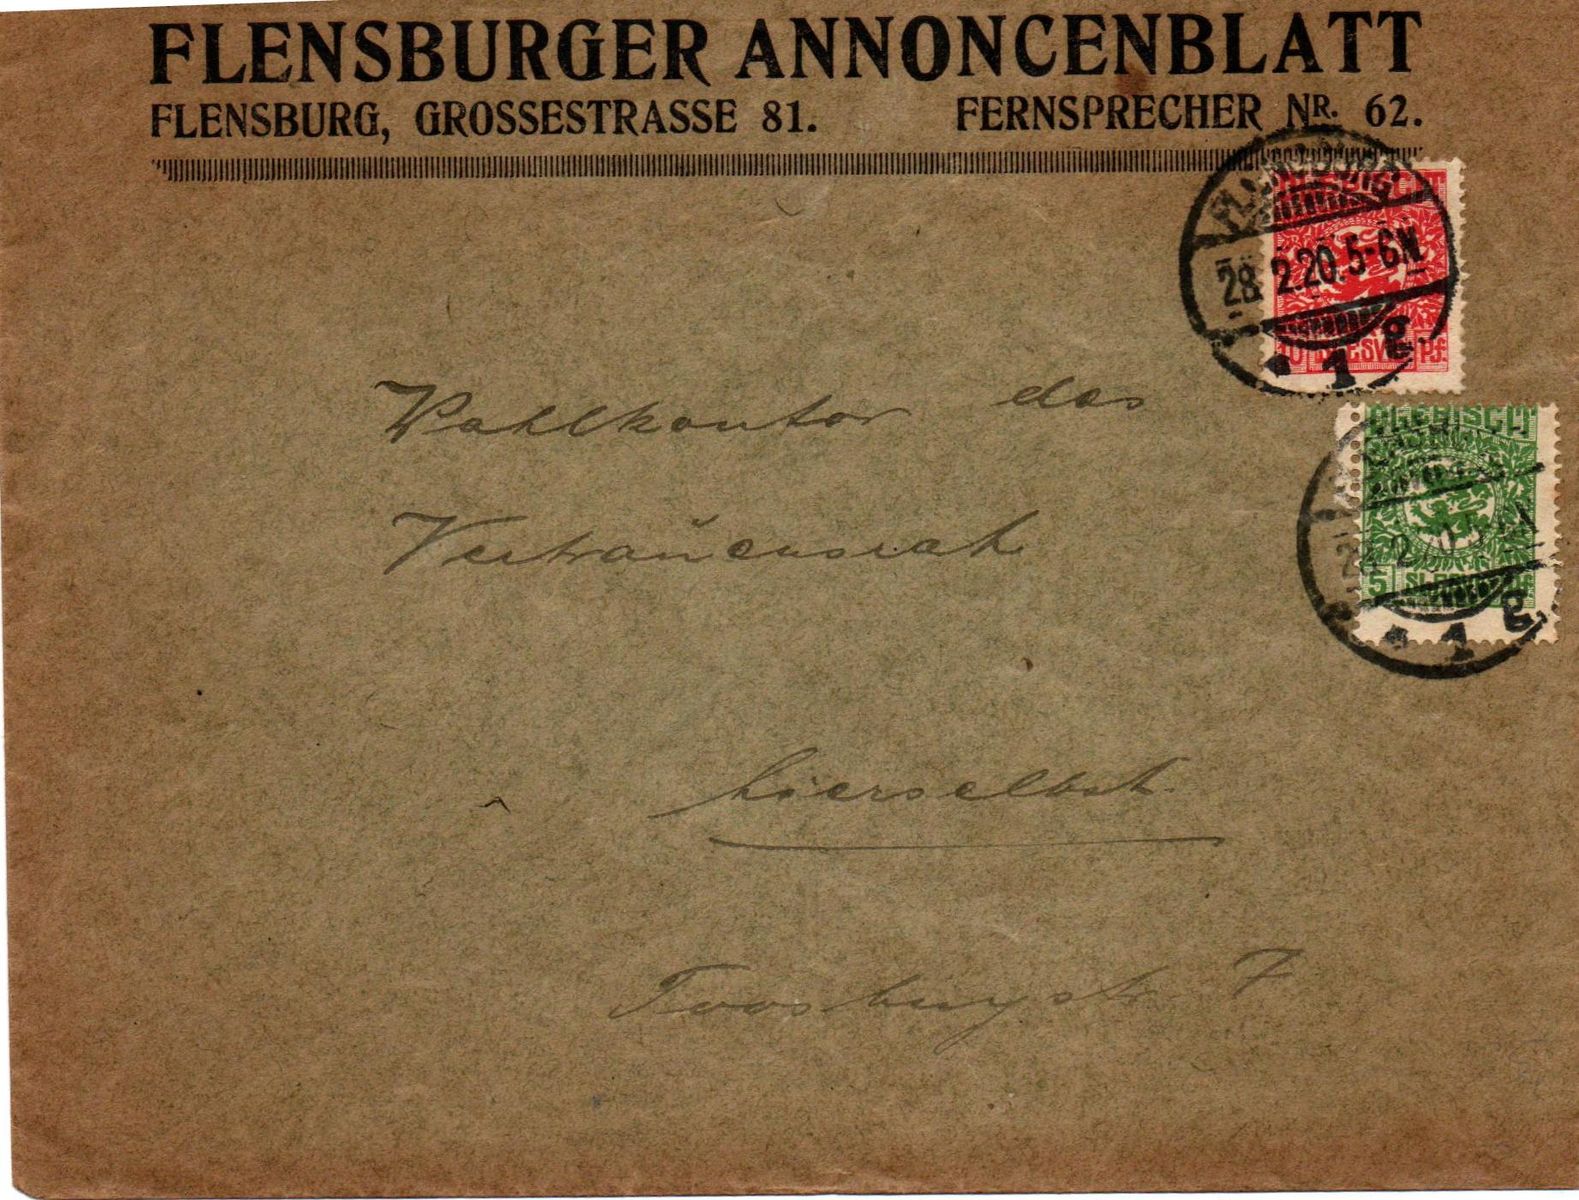 FLENSBURGER ANNONCENBLATT
FLENSBURG, GROSSESTRASSE 81. FERNSPRECHER NR. 62.
FLENSBURG
28.2.20.5-6N.
* 1 g
10 SLESVIG Pf.
Wahlkontor des
Vertrauensrat
SLESVIG
5 SLESVIG Pf.
* 1 g
hierselbst.
Toosbuystr. 7